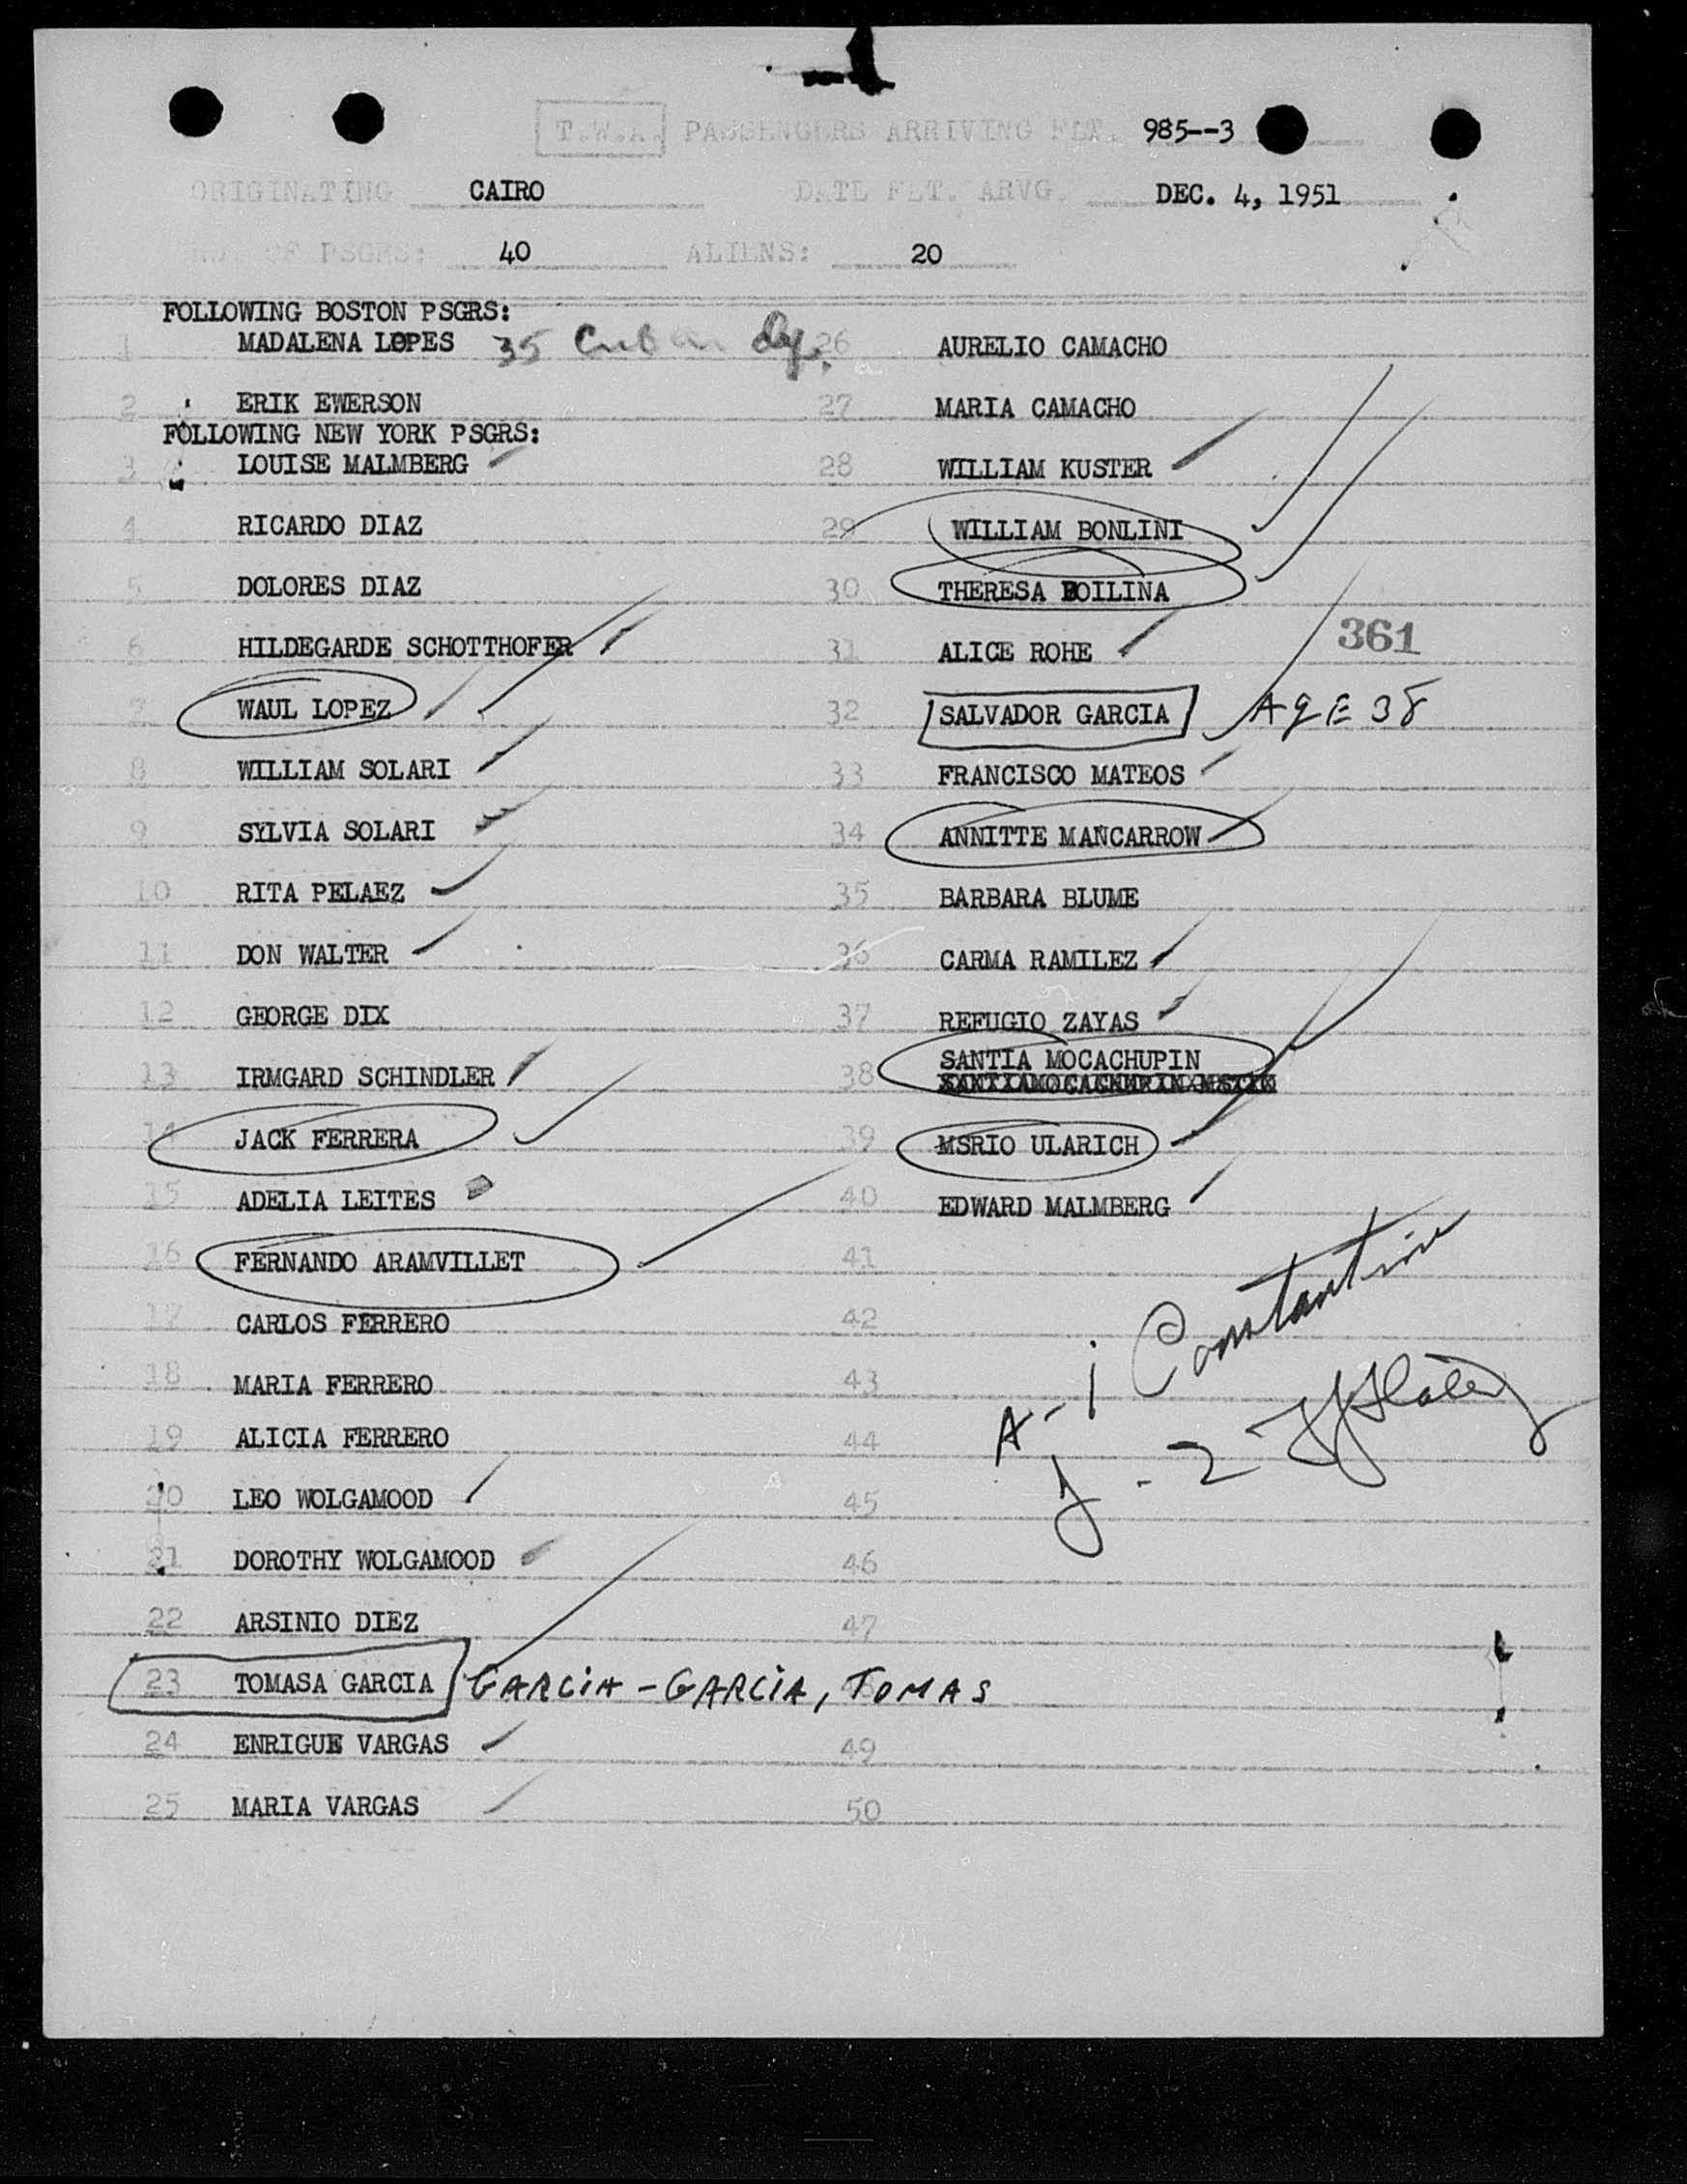 T.W.A. PASSENGERS ARRIVING FLT. 985--3
ORIGINATING CAIRO DATE FLT. ARVG. DEC. 4, 1951
NO. OF PSGRS: 40 ALIENS: 20
FOLLOWING BOSTON PSGRS:
1 MADALENA LOPES 35 Cuban
2 ERIK EWERSON
FOLLOWING NEW YORK PSGRS:
3 LOUISE MALMBERG
4 RICARDO DIAZ
5 DOLORES DIAZ
6 HILDEGARDE SCHOTTHOFER
7 WAUL LOPEZ
8 WILLIAM SOLARI
9 SYLVIA SOLARI
10 RITA PELAEZ
11 DON WALTER
12 GEORGE DIX
13 IRMGARD SCHINDLER
14 JACK FERRERA
15 ADELIA LEITES
16 FERNANDO ARAMVILLET
17 CARLOS FERRERO
18 MARIA FERRERO
19 ALICIA FERRERO
20 LEO WOLGAMOOD
21 DOROTHY WOLGAMOOD
22 ARSINIO DIEZ
23 TOMASA GARCIA GARCIA-GARCIA, TOMAS
24 ENRIGUE VARGAS
25 MARIA VARGAS
26 AURELIO CAMACHO
27 MARIA CAMACHO
28 WILLIAM KUSTER
29 WILLIAM BONLINI
30 THERESA BOILINA
31 ALICE ROHE
361
32 SALVADOR GARCIA AgE 38
33 FRANCISCO MATEOS
34 ANNITTE MANCARROW
35 BARBARA BLUME
36 CARMA RAMILEZ
37 REFUGIO ZAYAS
38 SANTIA MOCACHUPIN
39 MSRIO ULARICH
40 EDWARD MALMBERG
41
42
43
44
45
46
47
49
50
A-1 Constantine
J-2